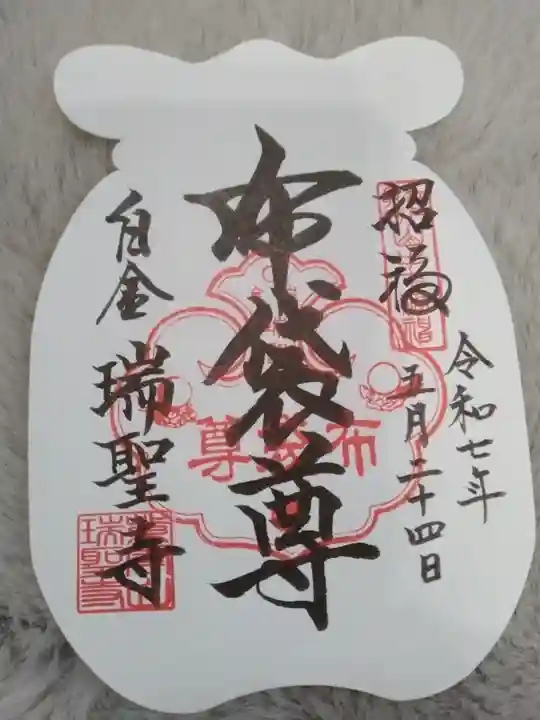 招福
令和七年
五月二十四日
布袋尊
布袋尊
白金
瑞聖寺